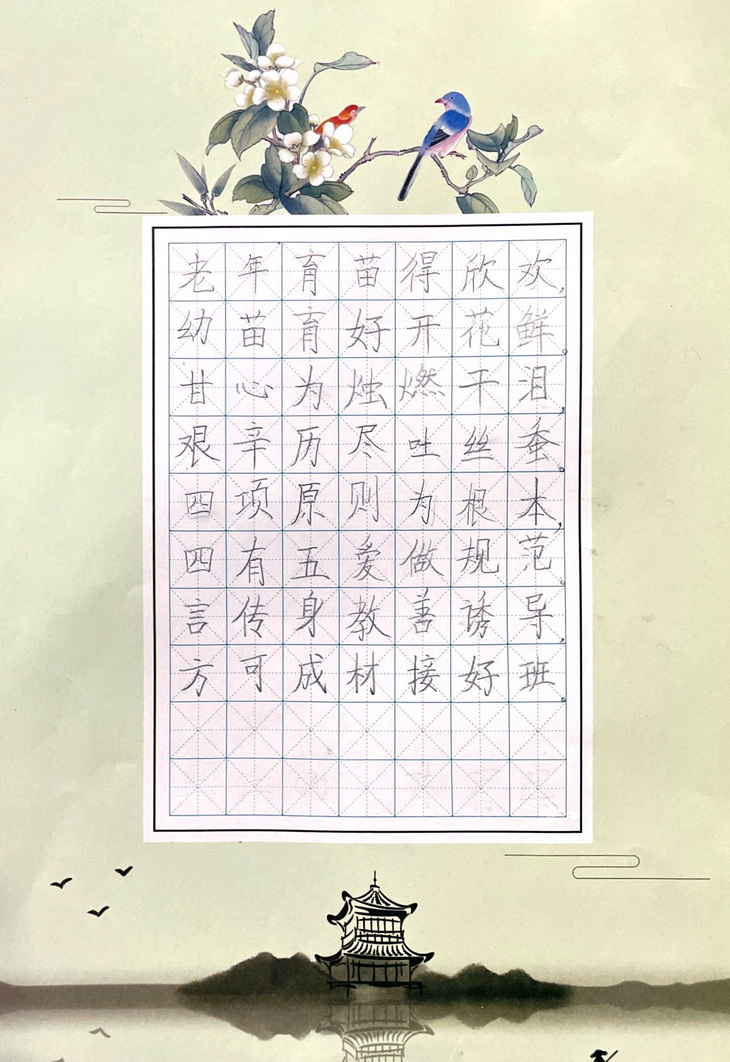 老年育苗得欣欢,
幼苗育好开花鲜。
甘心为烛燃干泪,
艰辛历尽吐丝蚕。
四项原则为根本,
四有五爱做规范。
言传身教善诱导,
方可成材接好班。